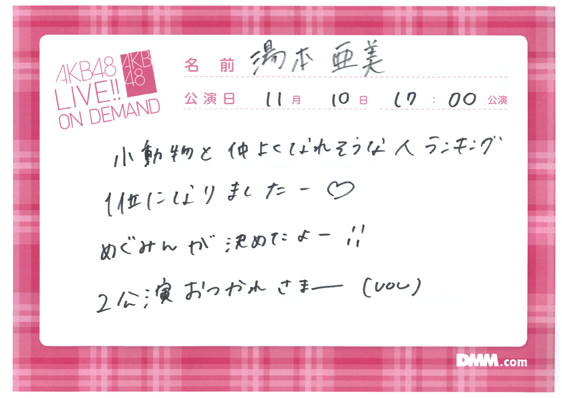 AKB48
LIVE!!
ON DEMAND
AKB
48
名前 湯本亜美
公演日 11月 10日 17:00 公演
小動物と仲よくなれそうな人ランキング
1位になりましたー♡
めぐみんが決めたよー!!
2公演おつかれさまー (UOU)
DMM.com